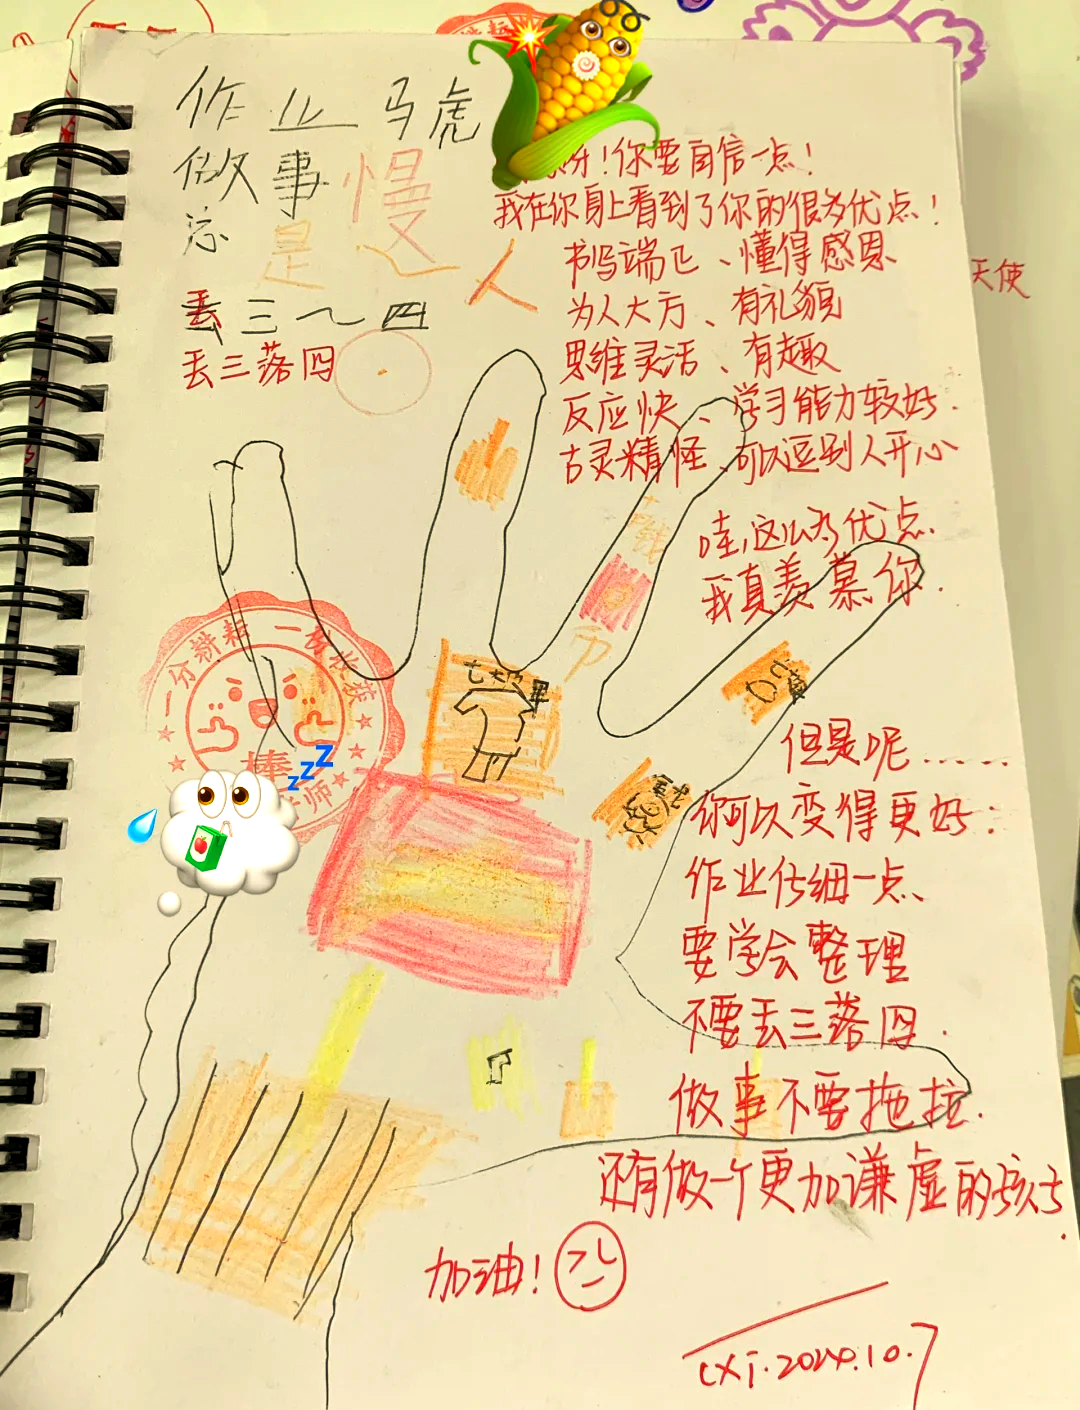 作业马虎
做事慢
总是
人
丢三
四
丢三落四
呀！你要自信一点！
我在你身上看到了你的很多优点！
书写端正、懂得感恩
为人大方、有礼貌
思维灵活、有趣
反应快、学习能力较好.
古灵精怪、可以逗别人开心
哇，这么多优点.
我真羡慕你.
天使
钱
币
一分耕耘 一份收获
棒
师
但是呢......
你可以变得更好：
作业仔细一点、
要学会整理
不要丢三落四.
做事不要拖拉.
还有做一个更加谦虚的孩子.
加油！
cxj.2024.10.7